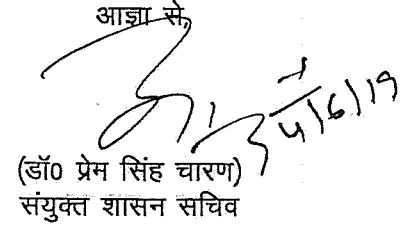 आज्ञा से,
4/6/19
(डॉ0 प्रेम सिंह चारण)
संयुक्त शासन सचिव